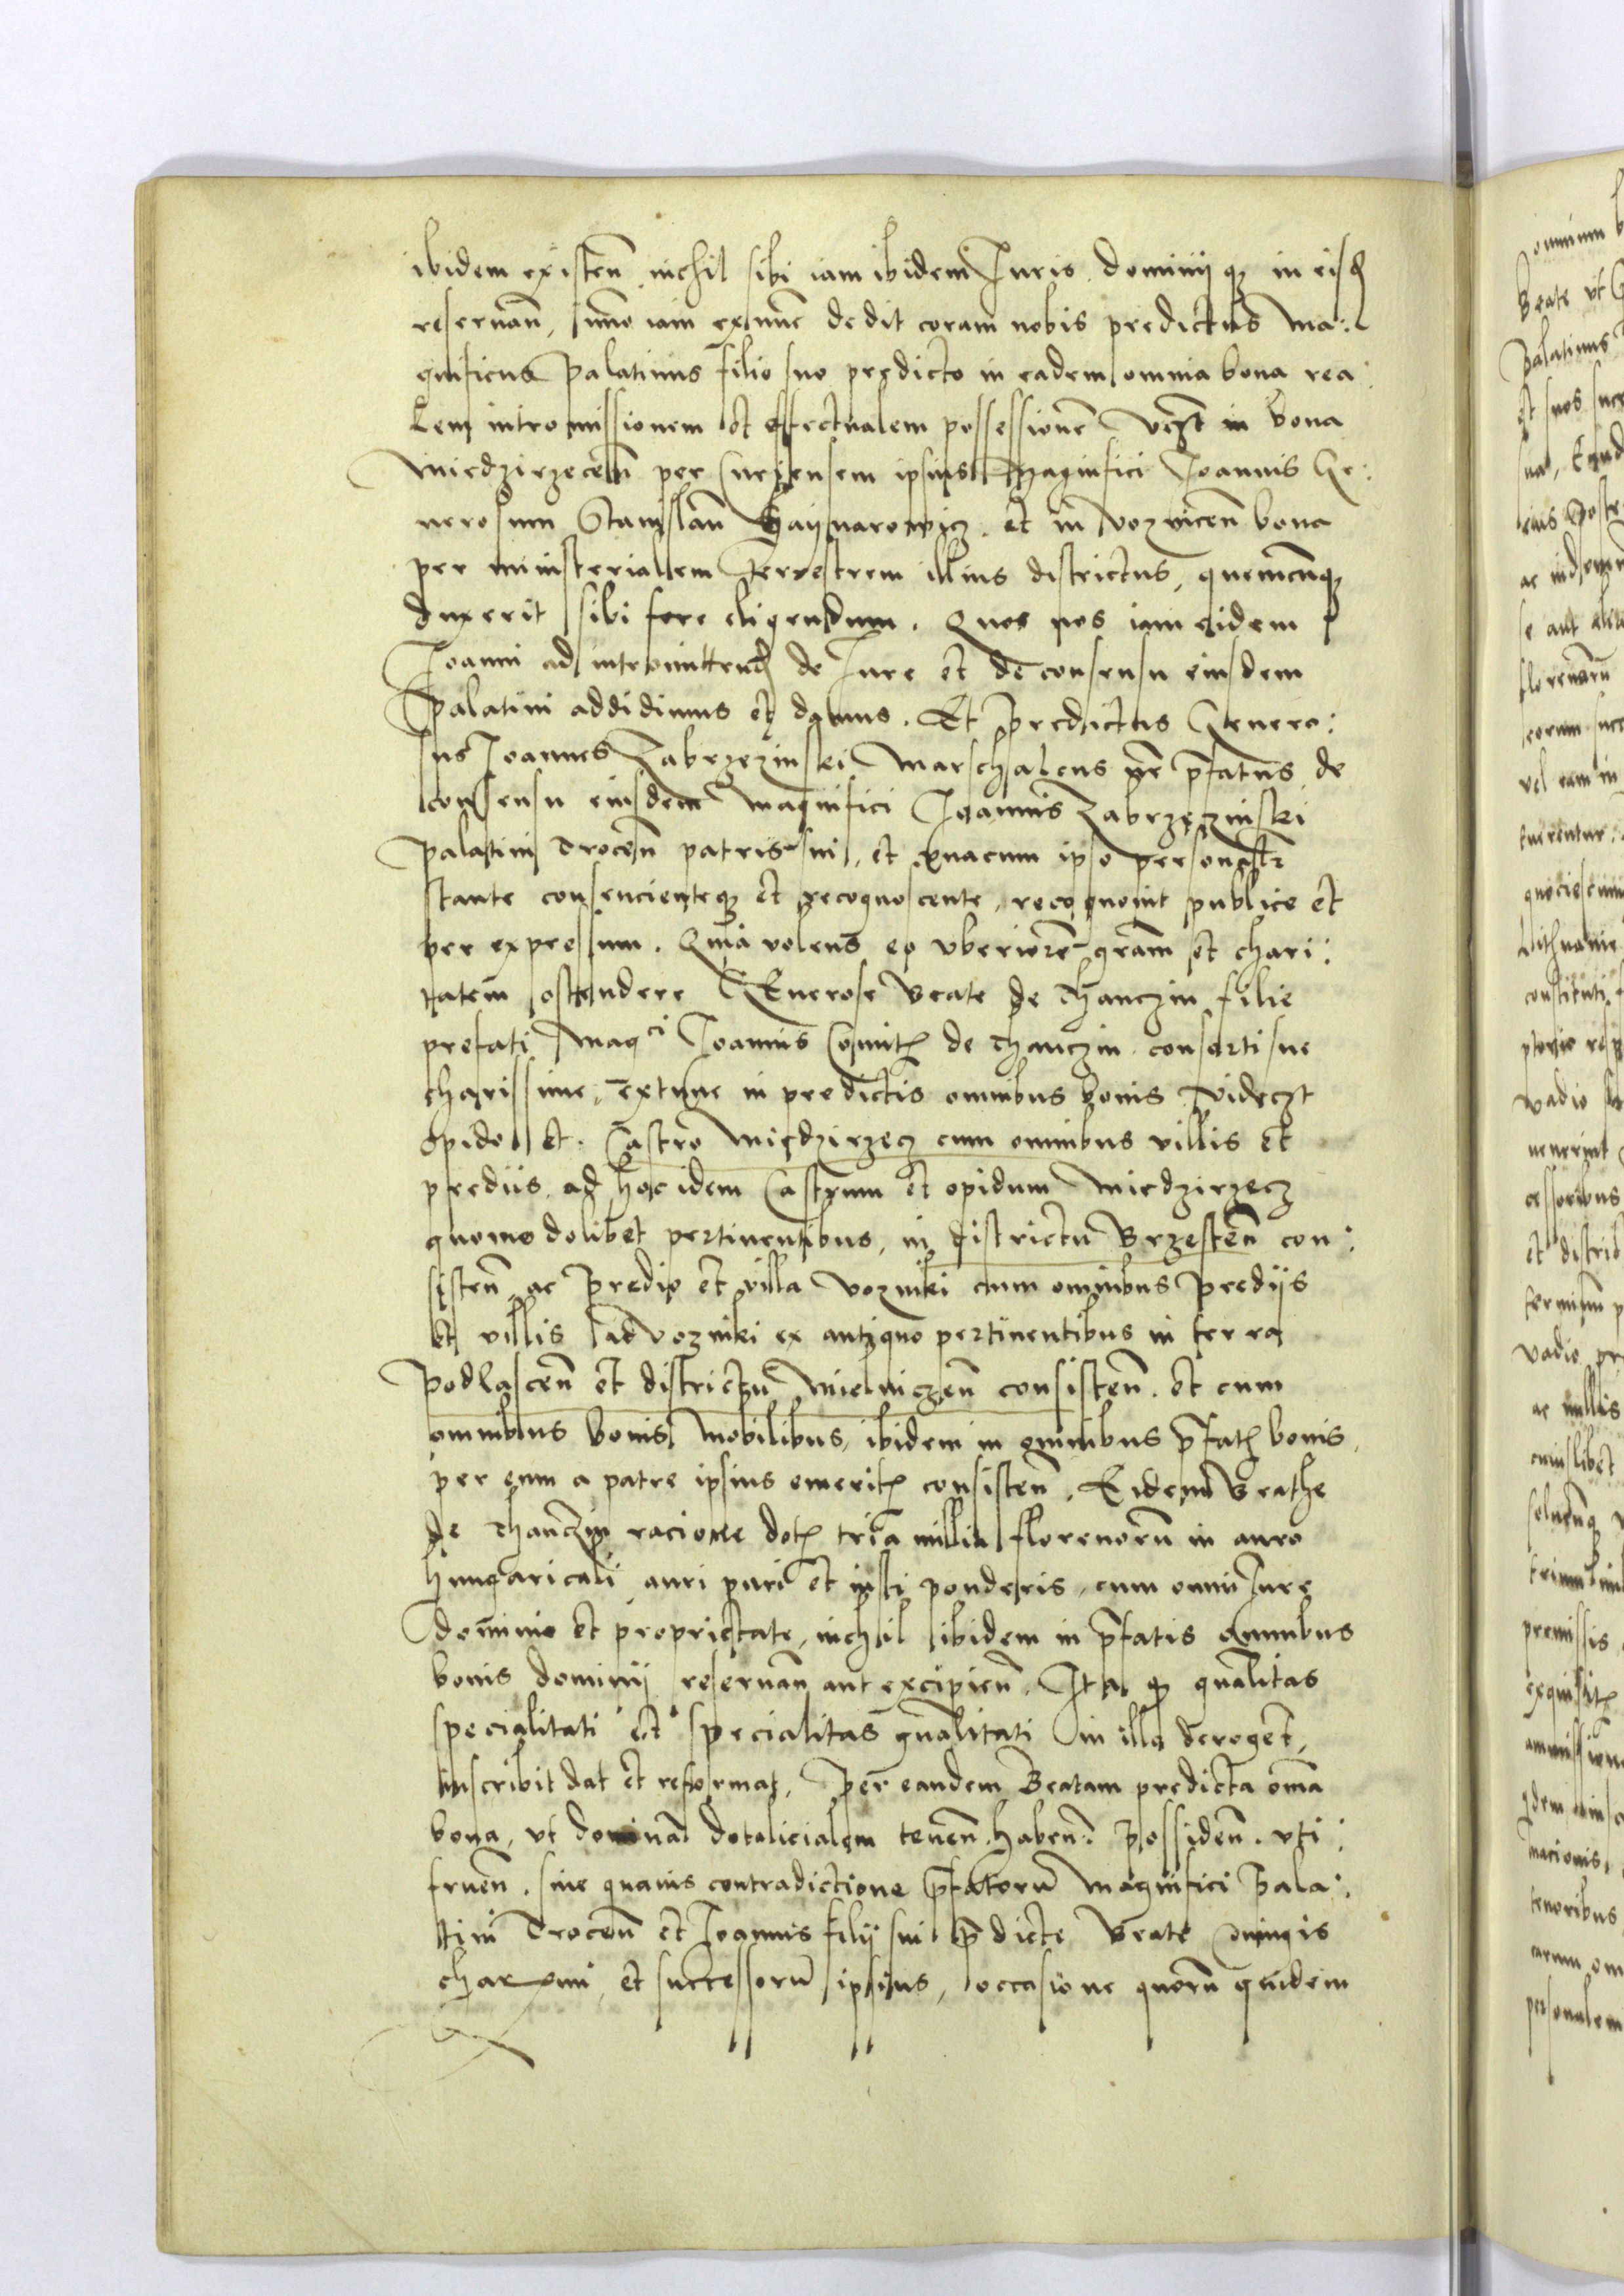 ibidem existeñ nichil sibi iam ibidem Iuris dominij qȝ in eisd
reseruañ, imo iam extunc dedit coram nobis predictus Ma:
gnificus Palatinus filio suo predicto in eadem omnia bona rea:
lem intromissionem et effectualem possessionē Vcȝt in bona
Miedzirzeceñ per Curiensem ipsius Magnifici Joannis Ge:
nerosum Stanislaū Haynarowicz. et in Vozniceñ bona
per ministerialem Terrestrem illius districtus, quemcunqȝ
duxerit sibi fore eligendum. Quos nos iam eidem
Joanni ad intromittend de Iure et de consensu eiusdem
Palatini addidimus et damus. Et predictus Genero:
sus Joannes Zabrzezinski Marschalcus gñr p̄fatus de
consensu eiusdem Magnifici Joannis Zabrzezinski
Palatini Troceñ patris sui, et vnacum ipso personalr
stante consencienteqȝ et recognoscente, recognouit publice et
per expressum. Quia volens eo vberiorē gram et chari:
tatem ostendere Generose Beate de Thanczin filie
prefati Magci Joannis Comitꝭ de Thanczin consorti sue
charissime, extunc in predictis omnibus bonis videcȝt
opido et Castro Miedzirzecz cum omnibus villis et
predijs ad hoc idem Castrum et opidum Miedzirzecz
quomodolibet pertinentibus, in districtu Brzesteñ con:
sisteñ ac predio et villa Vozniki cum omnibus predijs
et villis ad Vozniki ex antiquo pertinentibus in terra
Podlasceñ et districtu Mielniczeñ consisteñ. et cum
omnibus bonis mobilibus, ibidem in omnibus p̄fatꝭ bonis,
per eum a patre ipsius emeritꝭ consisteñ. Eidem Beathe
de Thanczin racione dotꝭ tria millia florenorū in auro
hungaricali auri puri et iusti ponderis, cum omni Iure
dominio et proprietate, nichil ibidem in p̄fatis omnibus
bonis dominij reseruañ aut excipieñ. Ita qȝ gñalitas
specialitati et specialitas gñalitati in illo deroget,
inscribit dat et reformat, per eandem Beatam predicta oma
bona, vt dominā dotalicialem teneñ. habeñ. possideñ. vti:
frueñ. sine quauis contradictione p̄fatorū Magnifici Pala:
tini Troceñ et Joannis filij sui p̄dicte Beate coniugis
charmi, et successorū ipsius, occasione quorū quidem